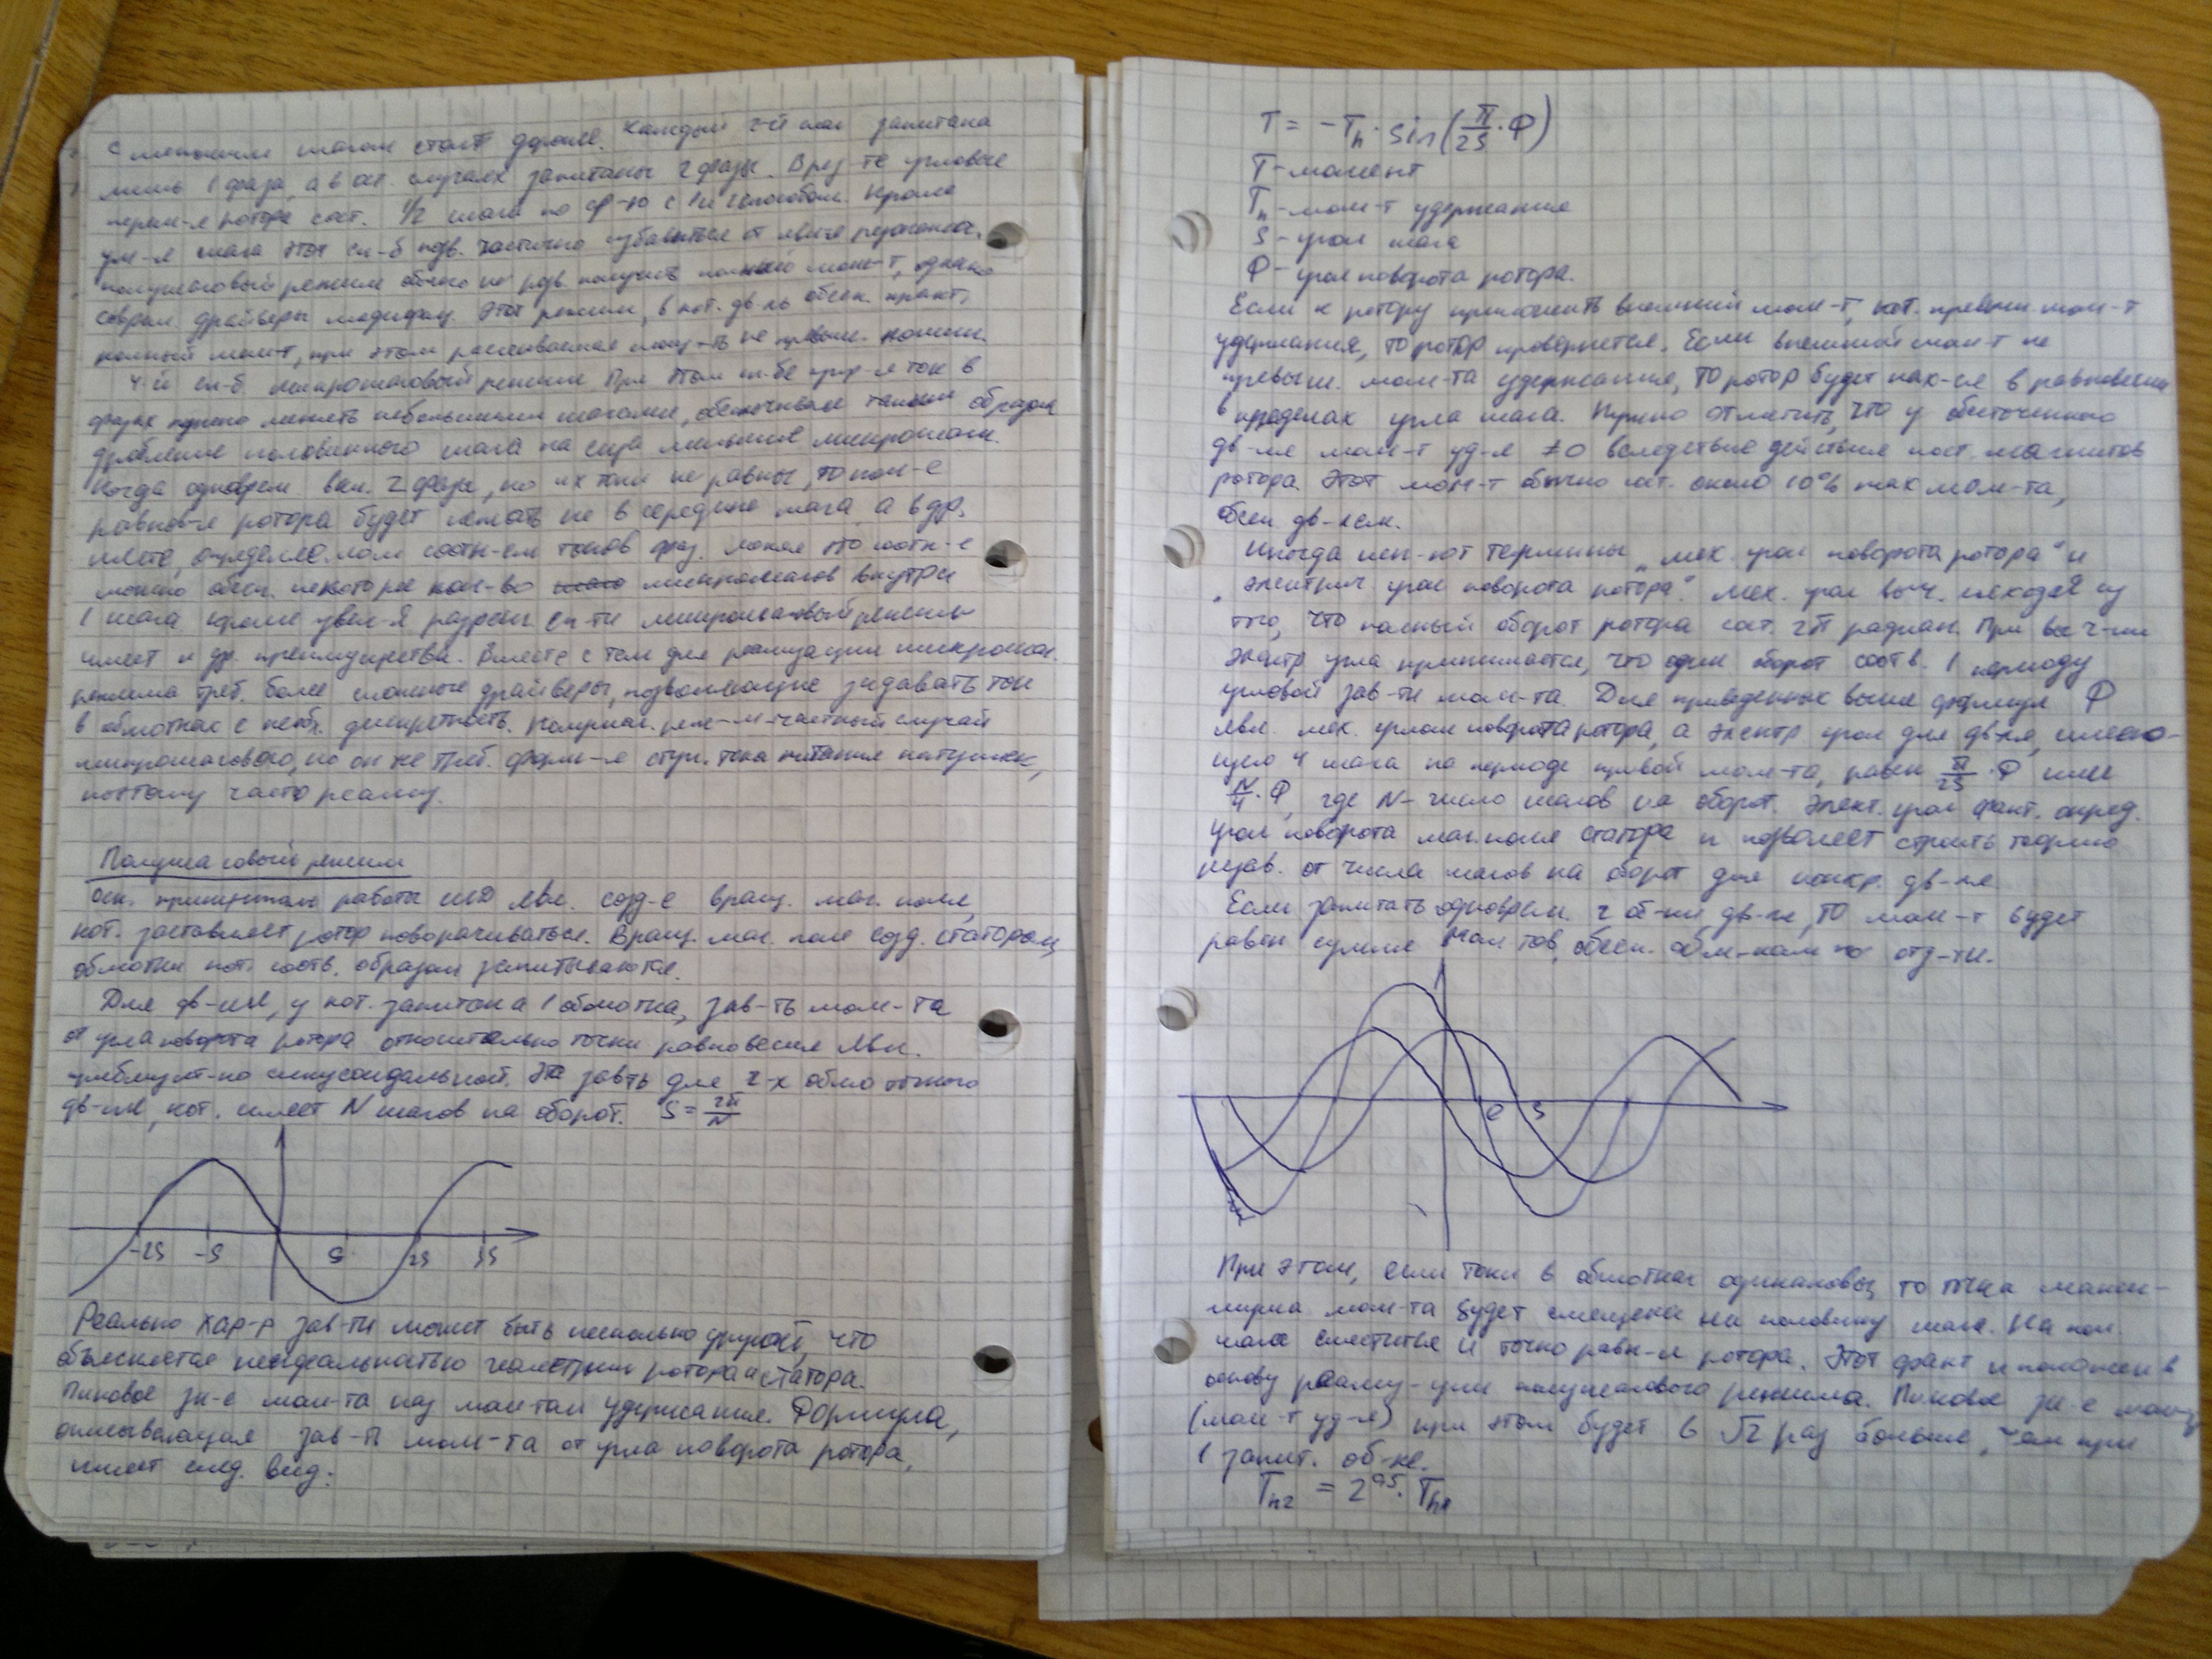 с меньшим шагом стоят дороже. Каждый 2-й шаг запитана
лишь 1 фаза, а в ост. случаях запитаны 2 фазы. В рез-те угловые
перем-я ротора сост. 1/2 шага по ср-ю с 1м способом. Кроме
ум-я шага этот сп-б позв. частично избавиться от явл-я резонанса.
полушаговый режим обычно не позв. получить полный мом-т, однако
соврем. драйверы модифиц. этот режим, в кот. дв-ль обесп. практ.
полный мом-т, при этом рассеиваемая мощ-ть не превыш. номин.
4-й сп-б. микрошаговый режим. При этом сп-бе упр-я ток в
фазах нужно менять небольшими шагами, обеспечивая таким образом
дробление половинного шага на ещё меньшие микрошаги.
Когда одноврем. вкл. 2 фазы, но их токи не равны, то пол-е
равнов-я ротора будет лежать не в середине шага, а в др.
месте, определяемом соотн-ем токов фаз. Меняя это соотн-е
можно обесп. некоторое кол-во микрошагов внутри
1 шага кроме увел-я разреш. сп-ти микрошаговый режим
имеет и др. преимущества. Вместе с тем для реализации микрошаг.
режима треб. более сложные драйверы, позволяющие задавать ток
в обмотках с необх. дискретность. Полушаг. реж-м-частный случай
микрошагового, но он не треб. форм-я ступ. тока питания катушек,
поэтому часто реализ.
Полушаговый режим
Осн. принципом работы ШД явл. созд-е вращ. маг. поля,
кот. заставляет ротор поворачиваться. Вращ. маг. поле созд. статором,
обмотки кот. соотв. образом запитываются.
Для дв-ля, у кот. запитана 1 обмотка, зав-ть мом-та
от угла поворота ротора относительно точки равновесия явл.
приблизит-но синусоидальной. Эта зав-ть для 2-х обмоточного
дв-ля, кот. имеет N шагов на оборот. S = 2π/N
-2S -S S 2S 3S
Реально хар-р зав-ти может быть несколько другой, что
объясняется неидеальностью геометрии ротора и статора.
Пиковое зн-е мом-та наз мом-том удержания. Формула,
описывающая зав-ть мом-та от угла поворота ротора,
имеет след. вид:
T = -Th · sin(π/2S · Φ)
T - момент
Th - мом-т удержания
S - угол шага
Φ - угол поворота ротора.
Если к ротору приложить внешний мом-т, кот. превыш. мом-т
удержания, то ротор провернется. Если внешний мом-т не
превыш. мом-та удержания, то ротор будет нах-ся в равновесии
в пределах угла шага. Нужно отметить, что у обесточенного
дв-ля мом-т уд-я ≠0 вследствие действия пост. магнитов
ротора. Этот мом-т обычно сост. около 10% max мом-та,
обесп. дв-лем.
Иногда исп-ют термины „мех. угол поворота ротора" и
„электрич. угол поворота ротора". Мех. угол выч. исходя из
того, что полный оборот ротора сост. 2π радиан. При выч-ии
электр. угла принимается, что один оборот соотв. 1 периоду
угловой зав-ти мом-та. Для приведенных выше формул Φ
явл. мех. углом поворота ротора, а электр угол для дв-ля, имею-
щего 4 шага на периоде кривой мом-та, равен π/2S · Φ или
N/4 · Φ, где N - число шагов на оборот. Элект. угол факт. опред.
угол поворота маг. поля статора и позволяет строить теорию
незав. от числа шагов на оборот для конкр. дв-ля
Если запитать одноврем. 2 об-ки дв-ля, то мом-т будет
равен сумме мом-тов, обесп. обм-ками по отд-ти.
S
При этом, если токи в обмотках одинаковы, то точка макси-
мума мом-та будет смещена на половину шага. На пол.
шага сместится и точка равн-я ротора. Этот факт и положен в
основу реализ-ции полушагового режима. Пиковое зн-е мом-та
(мом-т уд-я) при этом будет в √2 раз больше, чем при
1 запит. об-ке.
Th2 = 2^0,5 · Th1